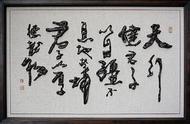 天行
健君子
以自強不
息地勢坤
君子以厚
德載物